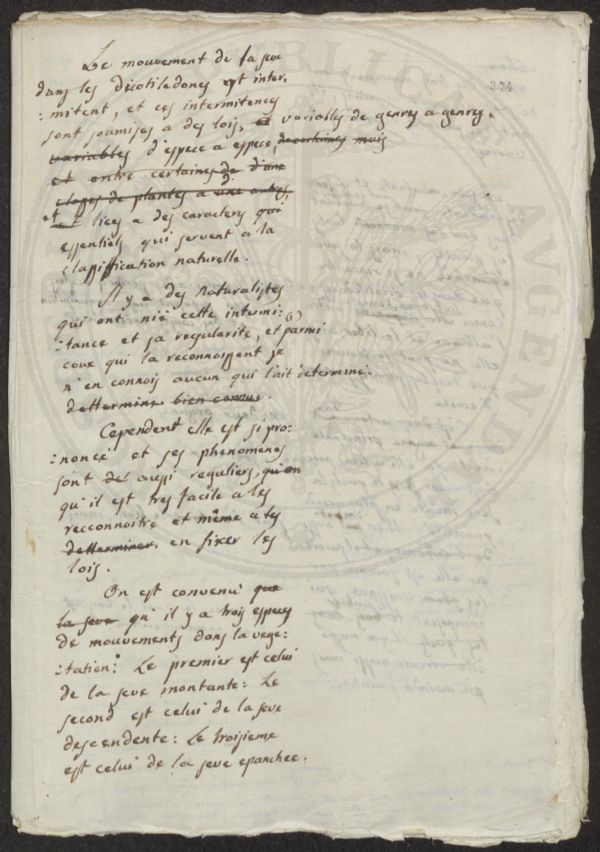 274
Le mouvement de la seve
dans les Dicotiledones est inter:
:mitent, et ces intermitences
sont soumises a des lois, et variables de genres a genres.
variables d'espece a espece, de certaines mais
et entre certaines de d'une
classes de plantes a une autre,
et liees a des caracters qui
essentiels qui servent a la
classiffication naturelle.
Il y a des naturalistes
qui ont nié cette intermi:
:tance et sa regularité, et parmi
ceux qui la reconnoissent je
n'en connois aucun qui l'ait determiné.
dettermine bien connue.
Cependent elle est si pro:
:noncé et ses phenomenes
sont de aussi reguliers, qu'on
qu'il est tres facile a les
recconnoitre et même a les
detterminer. en fixer les
lois.
On est convenu que
la seve qu'il y a trois especes
de mouvements dans la vege:
:tation: Le premier est celui
de la seve montante: Le
second est celui de la seve
descendente: Le troisieme
est celui de la seve epanchee.